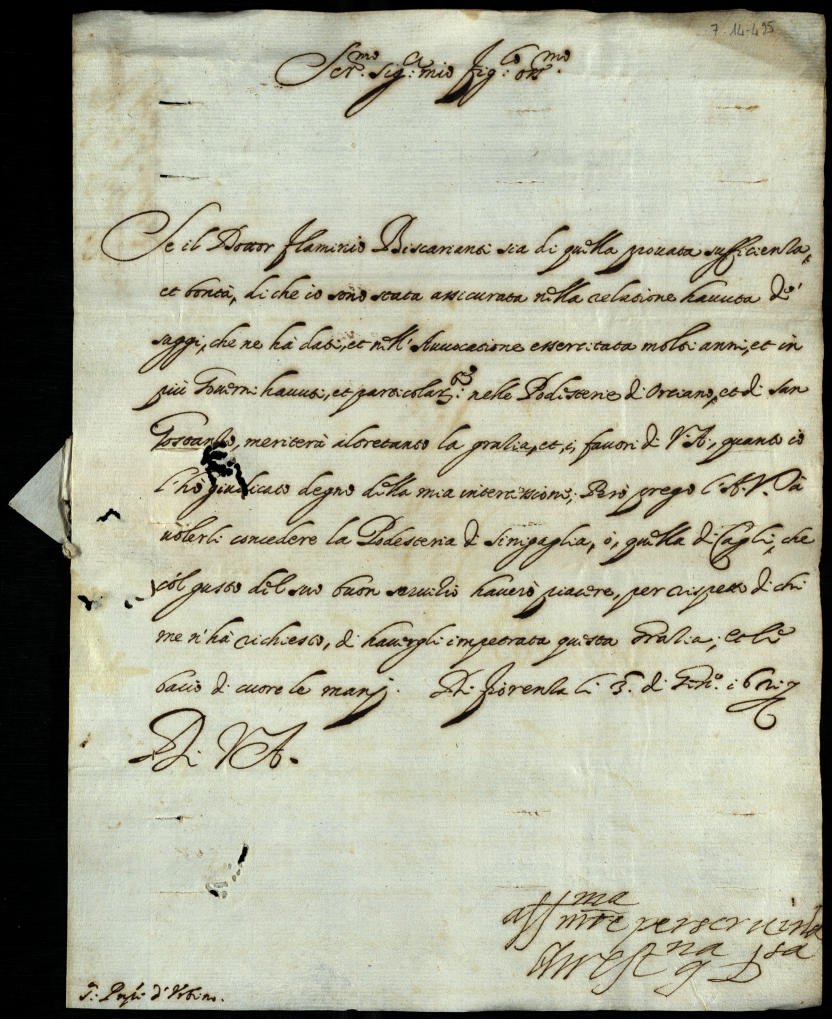 7-14-495
Ser.mo Sig.re mio fig.lo on.mo
Se il Dottor Flaminio Biscarianti sia di quella prouata sufficienza,
et bontà, di che io sono stata assicurata nella relatione hauuta de'
saggi, che ne hà dati, et nell'Auuocatione essercitata molti anni, et in
più Gouerni hauuti, et particolar.te nelle Podesterie di Orciano, et di San
Costanzo, meriterà altretanto la gratia, et i fauori di V.A., quanto io
l'hò giudicato degno della mia intercessione; Però prego l'A.V. à
uolerli concedere la Podesteria di Sinigaglia, ò, quella di Cagli, che
col gusto del suo buon seruitio hauerò piacere, per rispetto di chi
me n'hà richiesto, di hauergli impetrata questa gratia; et le
bacio di cuore le mani. Di Fiorenza li 3. di
Di V.A.
aff.ma
per seruirla
S.r Pr.pe d'Vrbino.